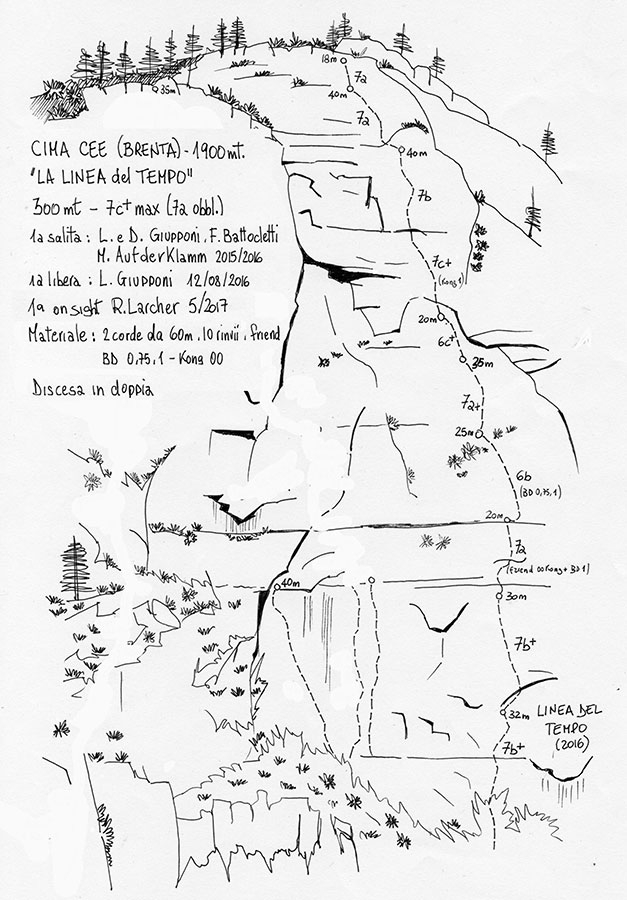 18m
7a
40m
35m
7a
40m
CIMA CEE (BRENTA) - 1900mt.
"LA LINEA del TEMPO"
300 mt - 7c+ max (7a obbl.)
1a salita : L. e D. GIUPPONI, F. BATTOCLETTI
M. AUFDERKLAMM 2015/2016
1a libera : L. GIUPPONI 12/08/2016
1a on sight R. LARCHER 5/2017
Materiale : 2 corde da 60m, 10 rinvii, friend
BD 0,75,1 - Kong 00
Discesa in doppia
7b
7c+
(Kong 1)
20m
6c+
35m
7a+
25m
6b
(BD 0,75,1)
20m
7a
(friend 00 Kong + BD 1)
40m
30m
7b+
32m
LINEA DEL
TEMPO
(2016)
7b+